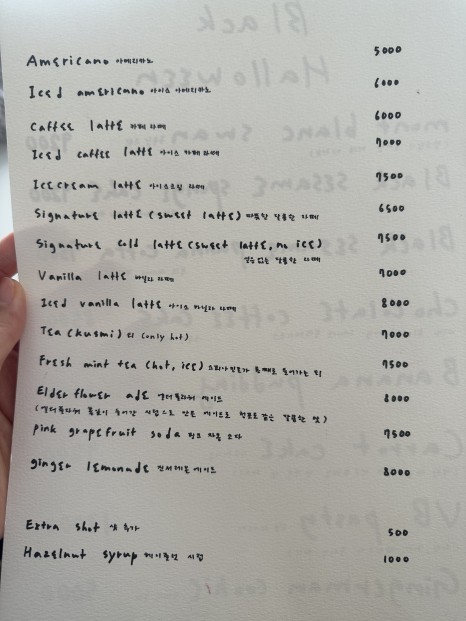 Americano 아메리카노 5000
Iced americano 아이스 아메리카노 6000
Caffee latte 카페 라떼 6000
Iced caffee latte 아이스 카페 라떼 7000
Icecream latte 아이스크림 라떼 7500
Signature latte (sweet latte) 따뜻한 달콤한 라떼 6500
Signature cold latte (sweet latte, no ice) 7500
얼음없는 달콤한 라떼
Vanilla latte 바닐라 라떼 7000
Iced vanilla latte 아이스 바닐라 라떼 8000
Tea (kusmi) 티 (only hot) 7000
Fresh mint tea (hot, ice) 스피아민트가 통째로 들어가는 티 7500
Elder flower ade 엘더플라워 에이드 8000
(엘더플라워 꽃잎이 들어간 시럽으로 만든 에이드로 청포도 같은 달콤한 맛)
pink grapefruit soda 핑크 자몽 소다 7500
ginger lemonade 진저레몬에이드 8000
Extra shot 샷 추가 500
Hazelnut syrup 헤이즐넛 시럽 1000
Black
Halloween
mont blanc swan
Black sesame
Black
chocolate coffee cake
Banana pudding
Carrot cake
VB pasty
Gingerman cookie 5000